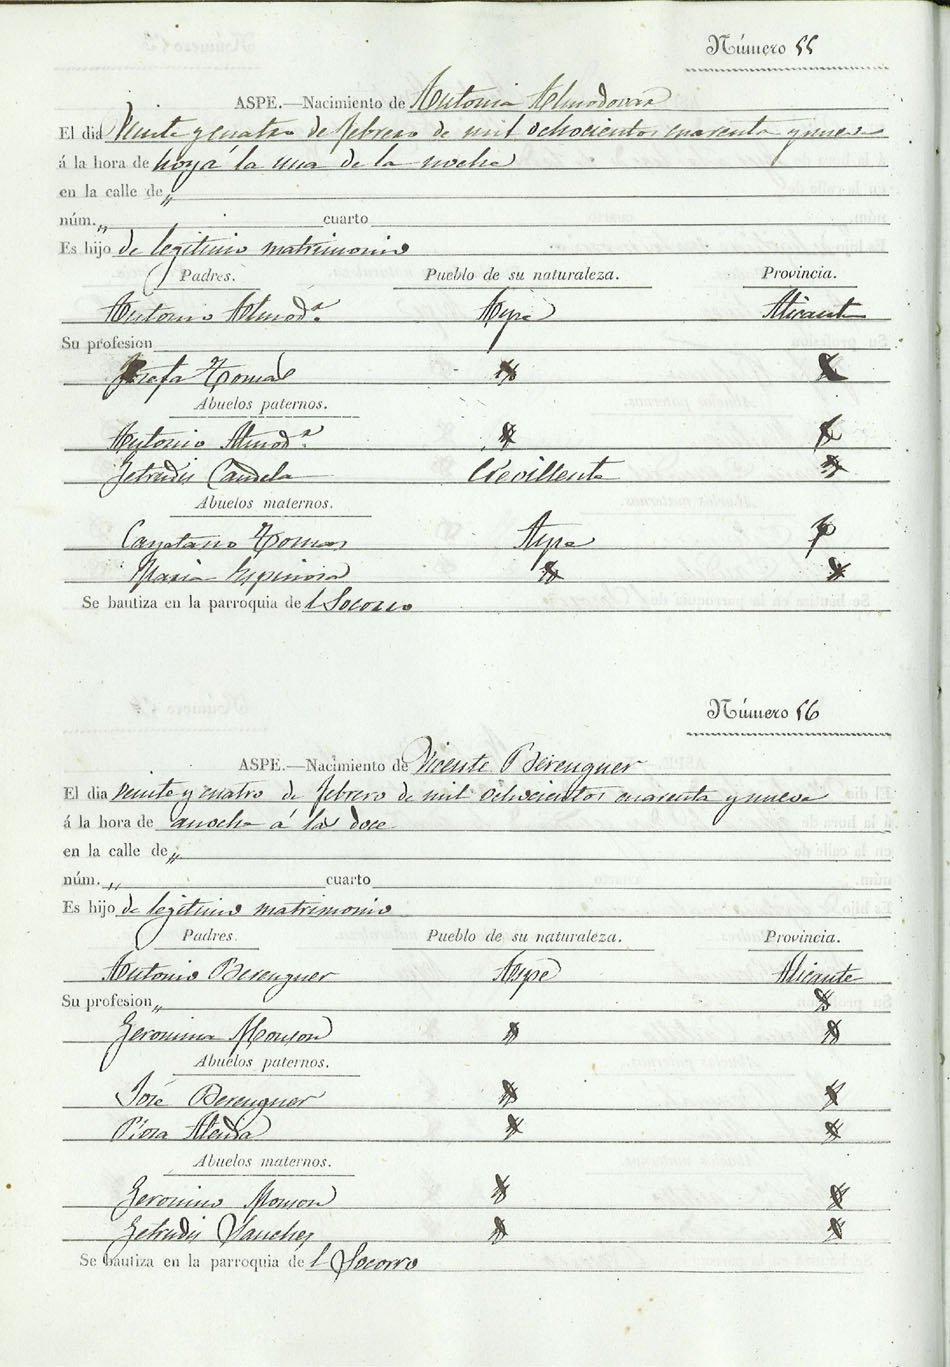 Número 55
ASPE.—Nacimiento de Antonia Almodovar
El dia Veinte y cuatro de febrero de mil ochocientos cuarenta y nueve
á la hora de hoy á la una de la noche
en la calle de „
núm. „ cuarto
Es hijo de legitimo matrimonio
Padres. Pueblo de su naturaleza. Provincia.
Antonio Almod.ª Aspe Alicante
Su profesion
Josefa Tomas
Abuelos paternos.
Antonio Almod.ª
Getrudis Candela Crevillente
Abuelos maternos.
Cayetano Tomas Aspe
Maria Espinosa
Se bautiza en la parroquia de l Socorro
Número 56
ASPE.—Nacimiento de Vicente Berenguer
El dia veinte y cuatro de febrero de mil ochocientos cuarenta y nueve
á la hora de anoche á las doce
en la calle de „
núm. „ cuarto
Es hijo de legitimo matrimonio
Padres. Pueblo de su naturaleza. Provincia.
Antonio Berenguer Aspe Alicante
Su profesion „
Geronima Monzon
Abuelos paternos.
José Berenguer
Abuelos maternos.
Geronimo Monzon
Getrudis Sanchez
Se bautiza en la parroquia de l Socorro